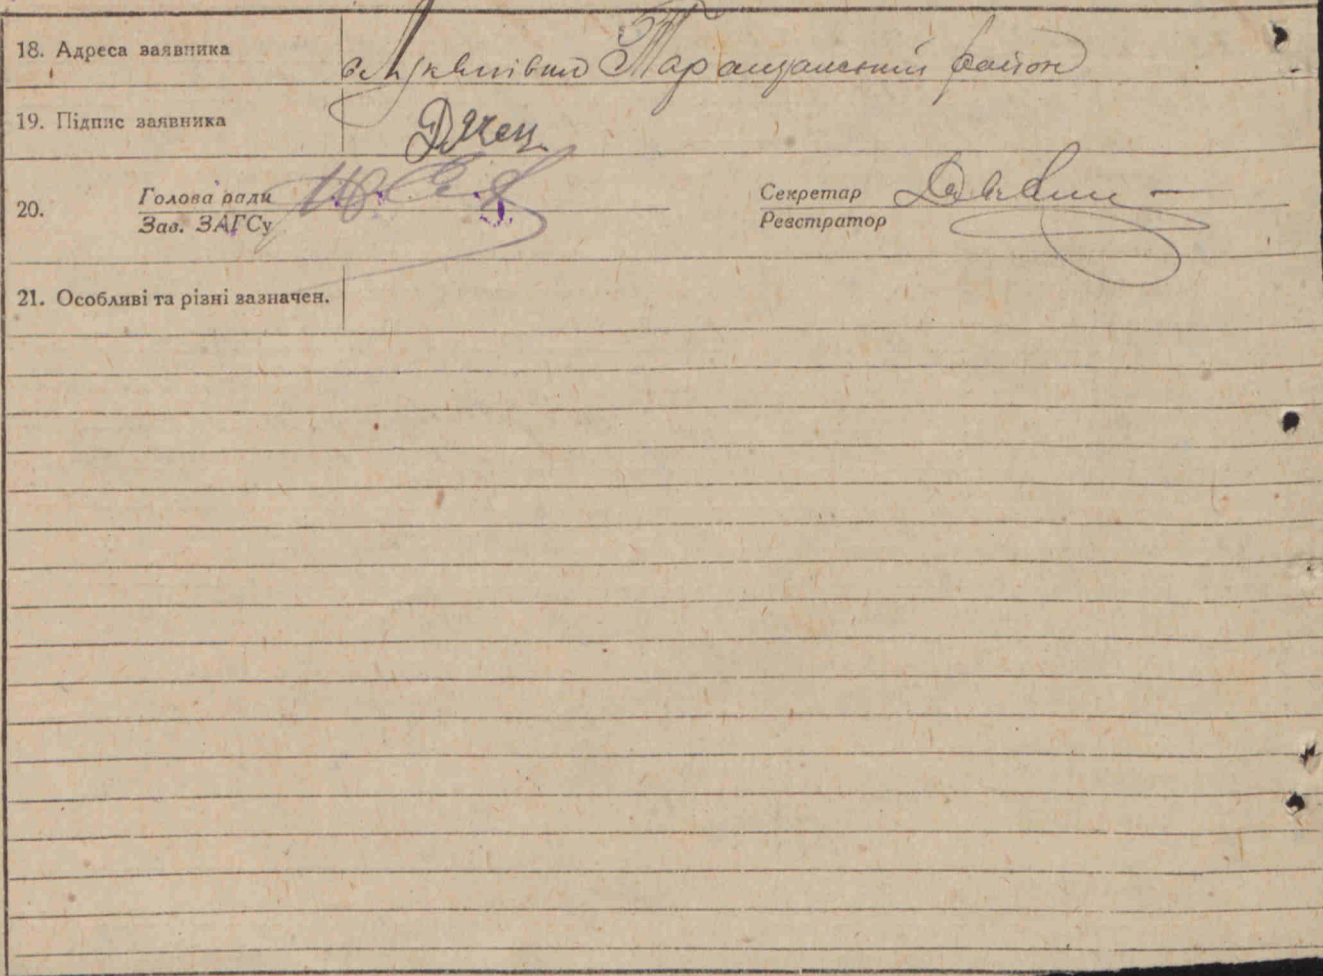 18. Адреса заявника с. Лукянівка Таращанський район
19. Підпис заявника
20. Голова ради Секретар
Зав. ЗАГСу Реєстратор
21. Особливі та різні зазначен.